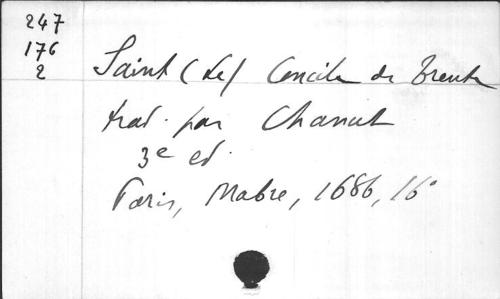 247
176
2
Saint (Le) Concile de Trente
trad. par Chanut
3e ed.
Paris, Mabre, 1686, 16°